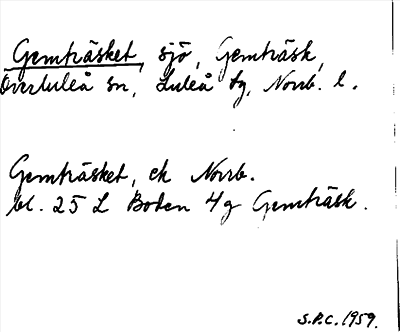 Gemträsket, sjö, Gemträsk,
Överluleå sn, Luleå tg, Norrb. l.
Gemträsket, ek Norrb.
bl. 25 L Boden 4g Gemträsk.
S.P.C. 1959.